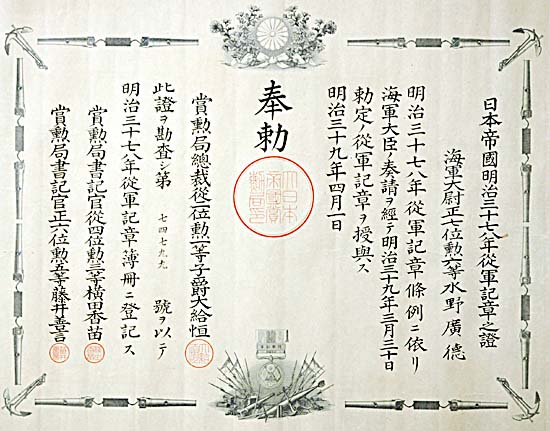 日本帝國明治三十七八年從軍記章之證
海軍大尉正七位勲六等水野廣徳
明治三十七八年從軍記章條例ニ依リ
海軍大臣ノ奏請ヲ經テ明治三十九年三月三十日
勅定ノ從軍記章ヲ授與ス
明治三十九年四月一日
奉勅
賞勲局總裁從二位勲一等子爵大給恒
此證ヲ勘査シ第 七四七九九 號ヲ以テ
明治三十七八年從軍記章簿册ニ登記ス
賞勲局書記官從四位勲三等横田香苗
賞勲局書記官正六位勲五等藤井善言